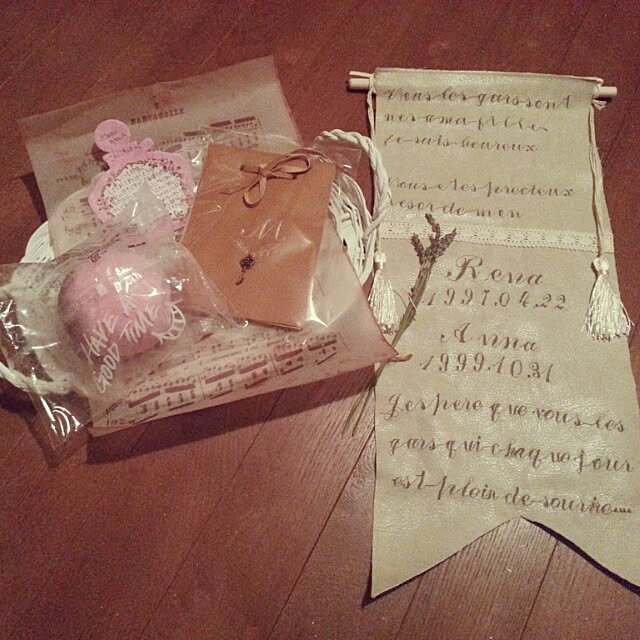 HAVE A
GOOD TIME
Vous les gars sont
nes a ma fille
Je suis heureux
Vous etes precieux
tresor de mon
Rena
1997.04.22
Anna
1999.10.31
J'espere que vous les
gars qui chaque jour
est plein de